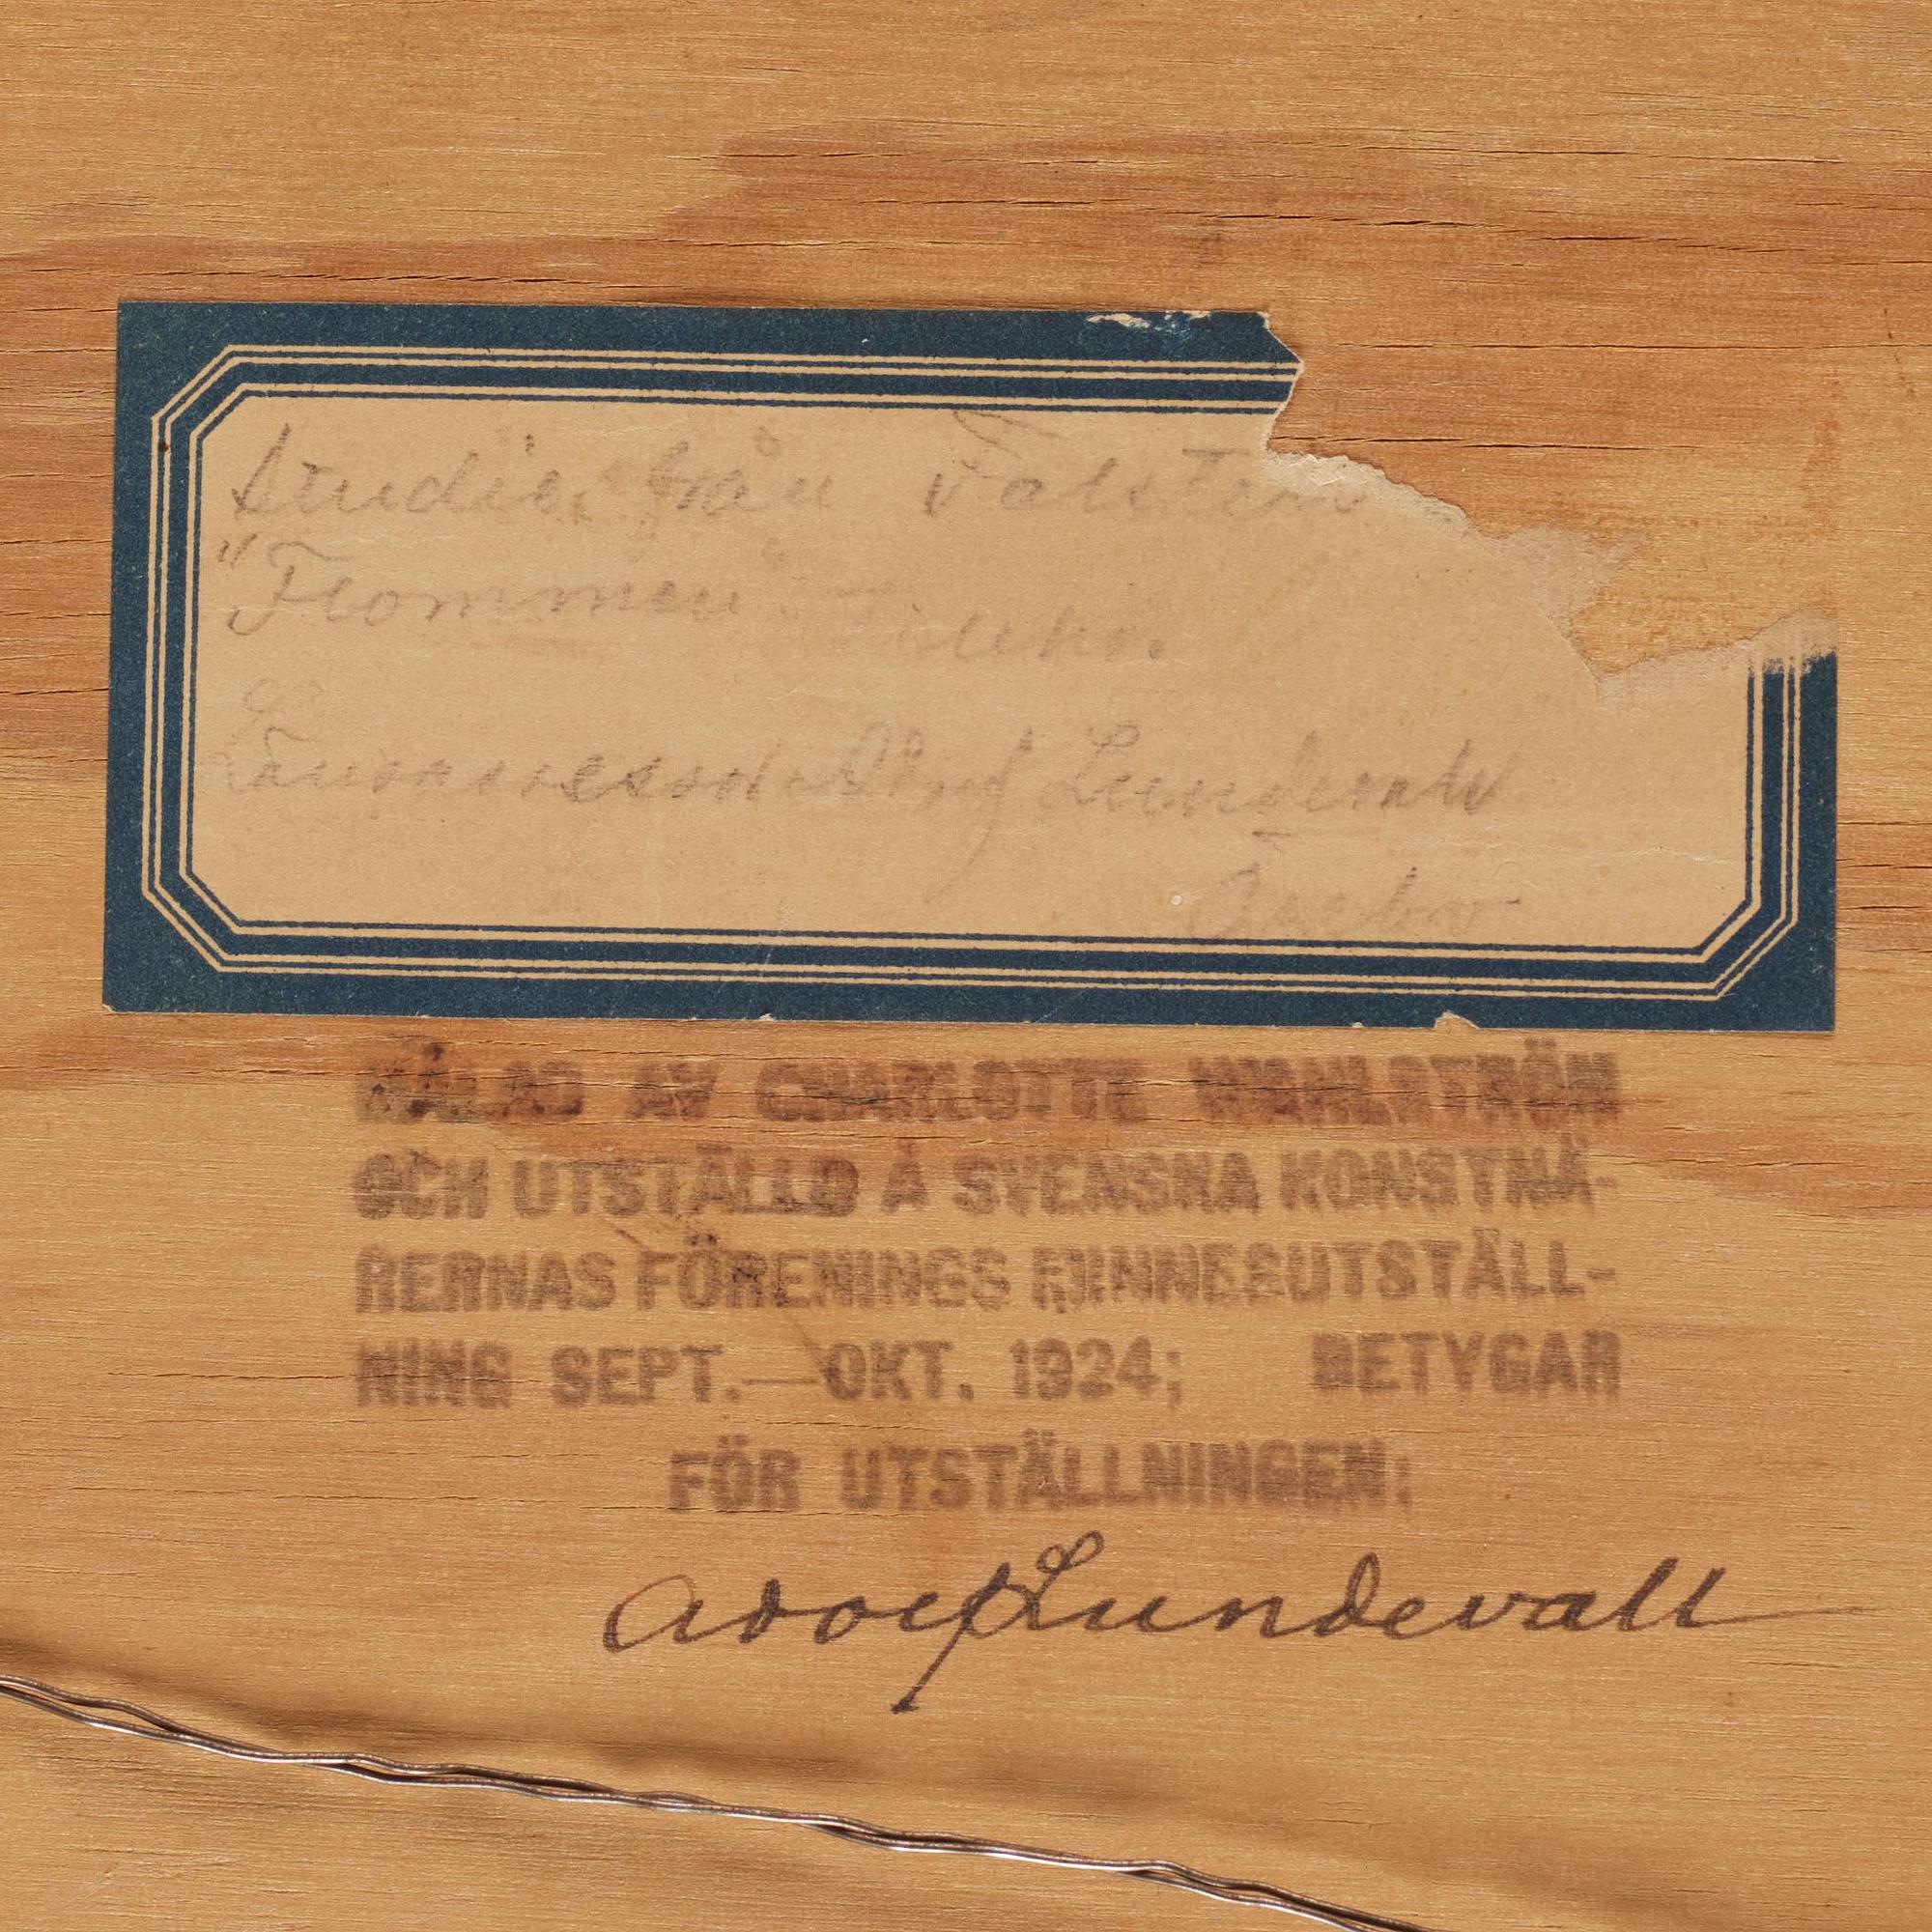 Studie från Falster
"Flommen"
Adolf Lundevall
MÅLAD AV CHARLOTTE WAHLSTRÖM
OCH UTSTÄLLD Å SVENSKA KONSTNÄ-
RERNAS FÖRENINGS MINNESUTSTÄLL-
NING SEPT.—OKT. 1924; BETYGAR
FÖR UTSTÄLLNINGEN:
Adolf Lundevall